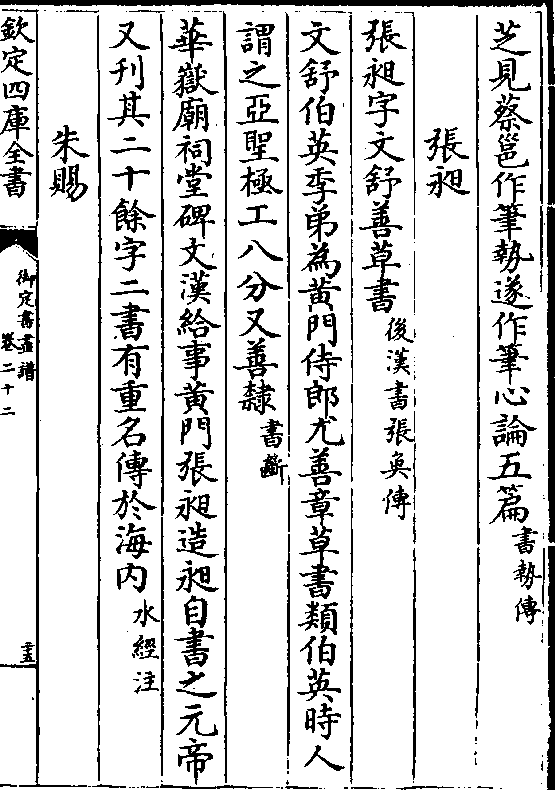 芝見蔡邕作筆勢遂作筆心論五篇書勢傳
張昶
張昶字文舒善草書後漢書張奐傳
文舒伯英季弟為黃門侍郎尤善章草書類伯英時人
謂之亞聖極工八分又善隸書斷
華嶽廟祠堂碑文漢給事黃門張昶造昶自書之元帝
又刊其二十餘字二書有重名傳於海內水經注
朱賜
欽定四庫全書
御定書畫譜
卷二十二